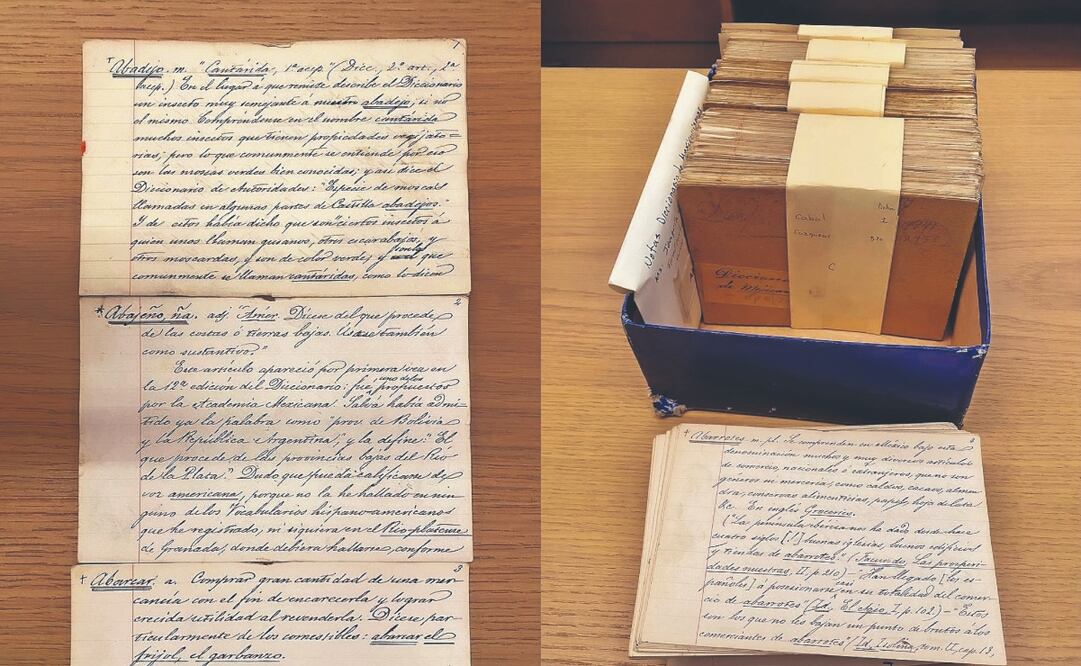 1
† Abadejo. m. "Cantárida, 1ª acep." (Dicc., 2º art., 2ª
acep.) En el lugar á que remite describe el Diccionario
un insecto muy semejante á nuestro abadejo, si no
el mismo. Compréndense en el nombre cantárida
muchos insectos que tienen propiedades vejigato=
rias; pero lo que comunmente se entiende por eso
son las moscas verdes bien conocidas; y así dice el
Diccionario de Autoridades: "Especie de moscas
llamadas en algunas partes de Castilla abadejos."
Y de estos había dicho que son ciertos insectos á
quien unos llaman gusanos, otros escarabajos, y
otros moscardas, y son de color verde; y son los que
comunmente se llaman cantáridas, como lo dicen
2
* Abajeño, ña. adj. "Amer. Dícese del que procede
de las costas ó tierras bajas. Úsase también
como sustantivo."
Este artículo apareció por primera vez en
la 12ª edición del Diccionario; fué uno de los propuestos
por la Academia Mexicana. Salvá había admi-
tido ya la palabra como "prov. de Bolivia
y la República Argentina", y la define: "El
que procede de las provincias bajas del Río
de la Plata." Dudo que pueda calificarse de
voz americana, porque no la he hallado en nin-
guno de los Vocabularios hispano-americanos
que he registrado, ni siquiera en el Rioplatense
de Granada, donde debiera hallarse, conforme
3
† Abarcar. a. Comprar gran cantidad de una mer-
cancía con el fin de encarecerla y lograr
crecida utilidad al revenderla. Dícese par-
ticularmente de los comestibles: abarcar el
frijol, el garbanzo.
Notas Diccionario de
Cabal
2
C
Diccionario
de
† Abarrotes. m. pl. Se comprenden en México bajo esta
denominación muchos y muy diversos artículos
de comercio, nacionales ó extranjeros, que no son
géneros ni mercería; como caldos, cacaos, almen
dra, conservas alimenticias, papel, hoja de lata
&c. En inglés Groceries.
("La península ibérica nos ha dado desde hace
cuatro siglos [!] buenas iglesias, buenos edificios
y tiendas de abarrotes." (Facundo, Las prosperi-
dades nuestras, II, p. 210) — "Han llegado [los es-
pañoles] á posesionarse casi en su totalidad del comer-
cio de abarrotes (Id., El I, p. 102.) — "Estos
son los que no les bajan un punto de brutos á los
comerciantes de abarrotes" (Id., Isolina, tom. II, cap. 13,